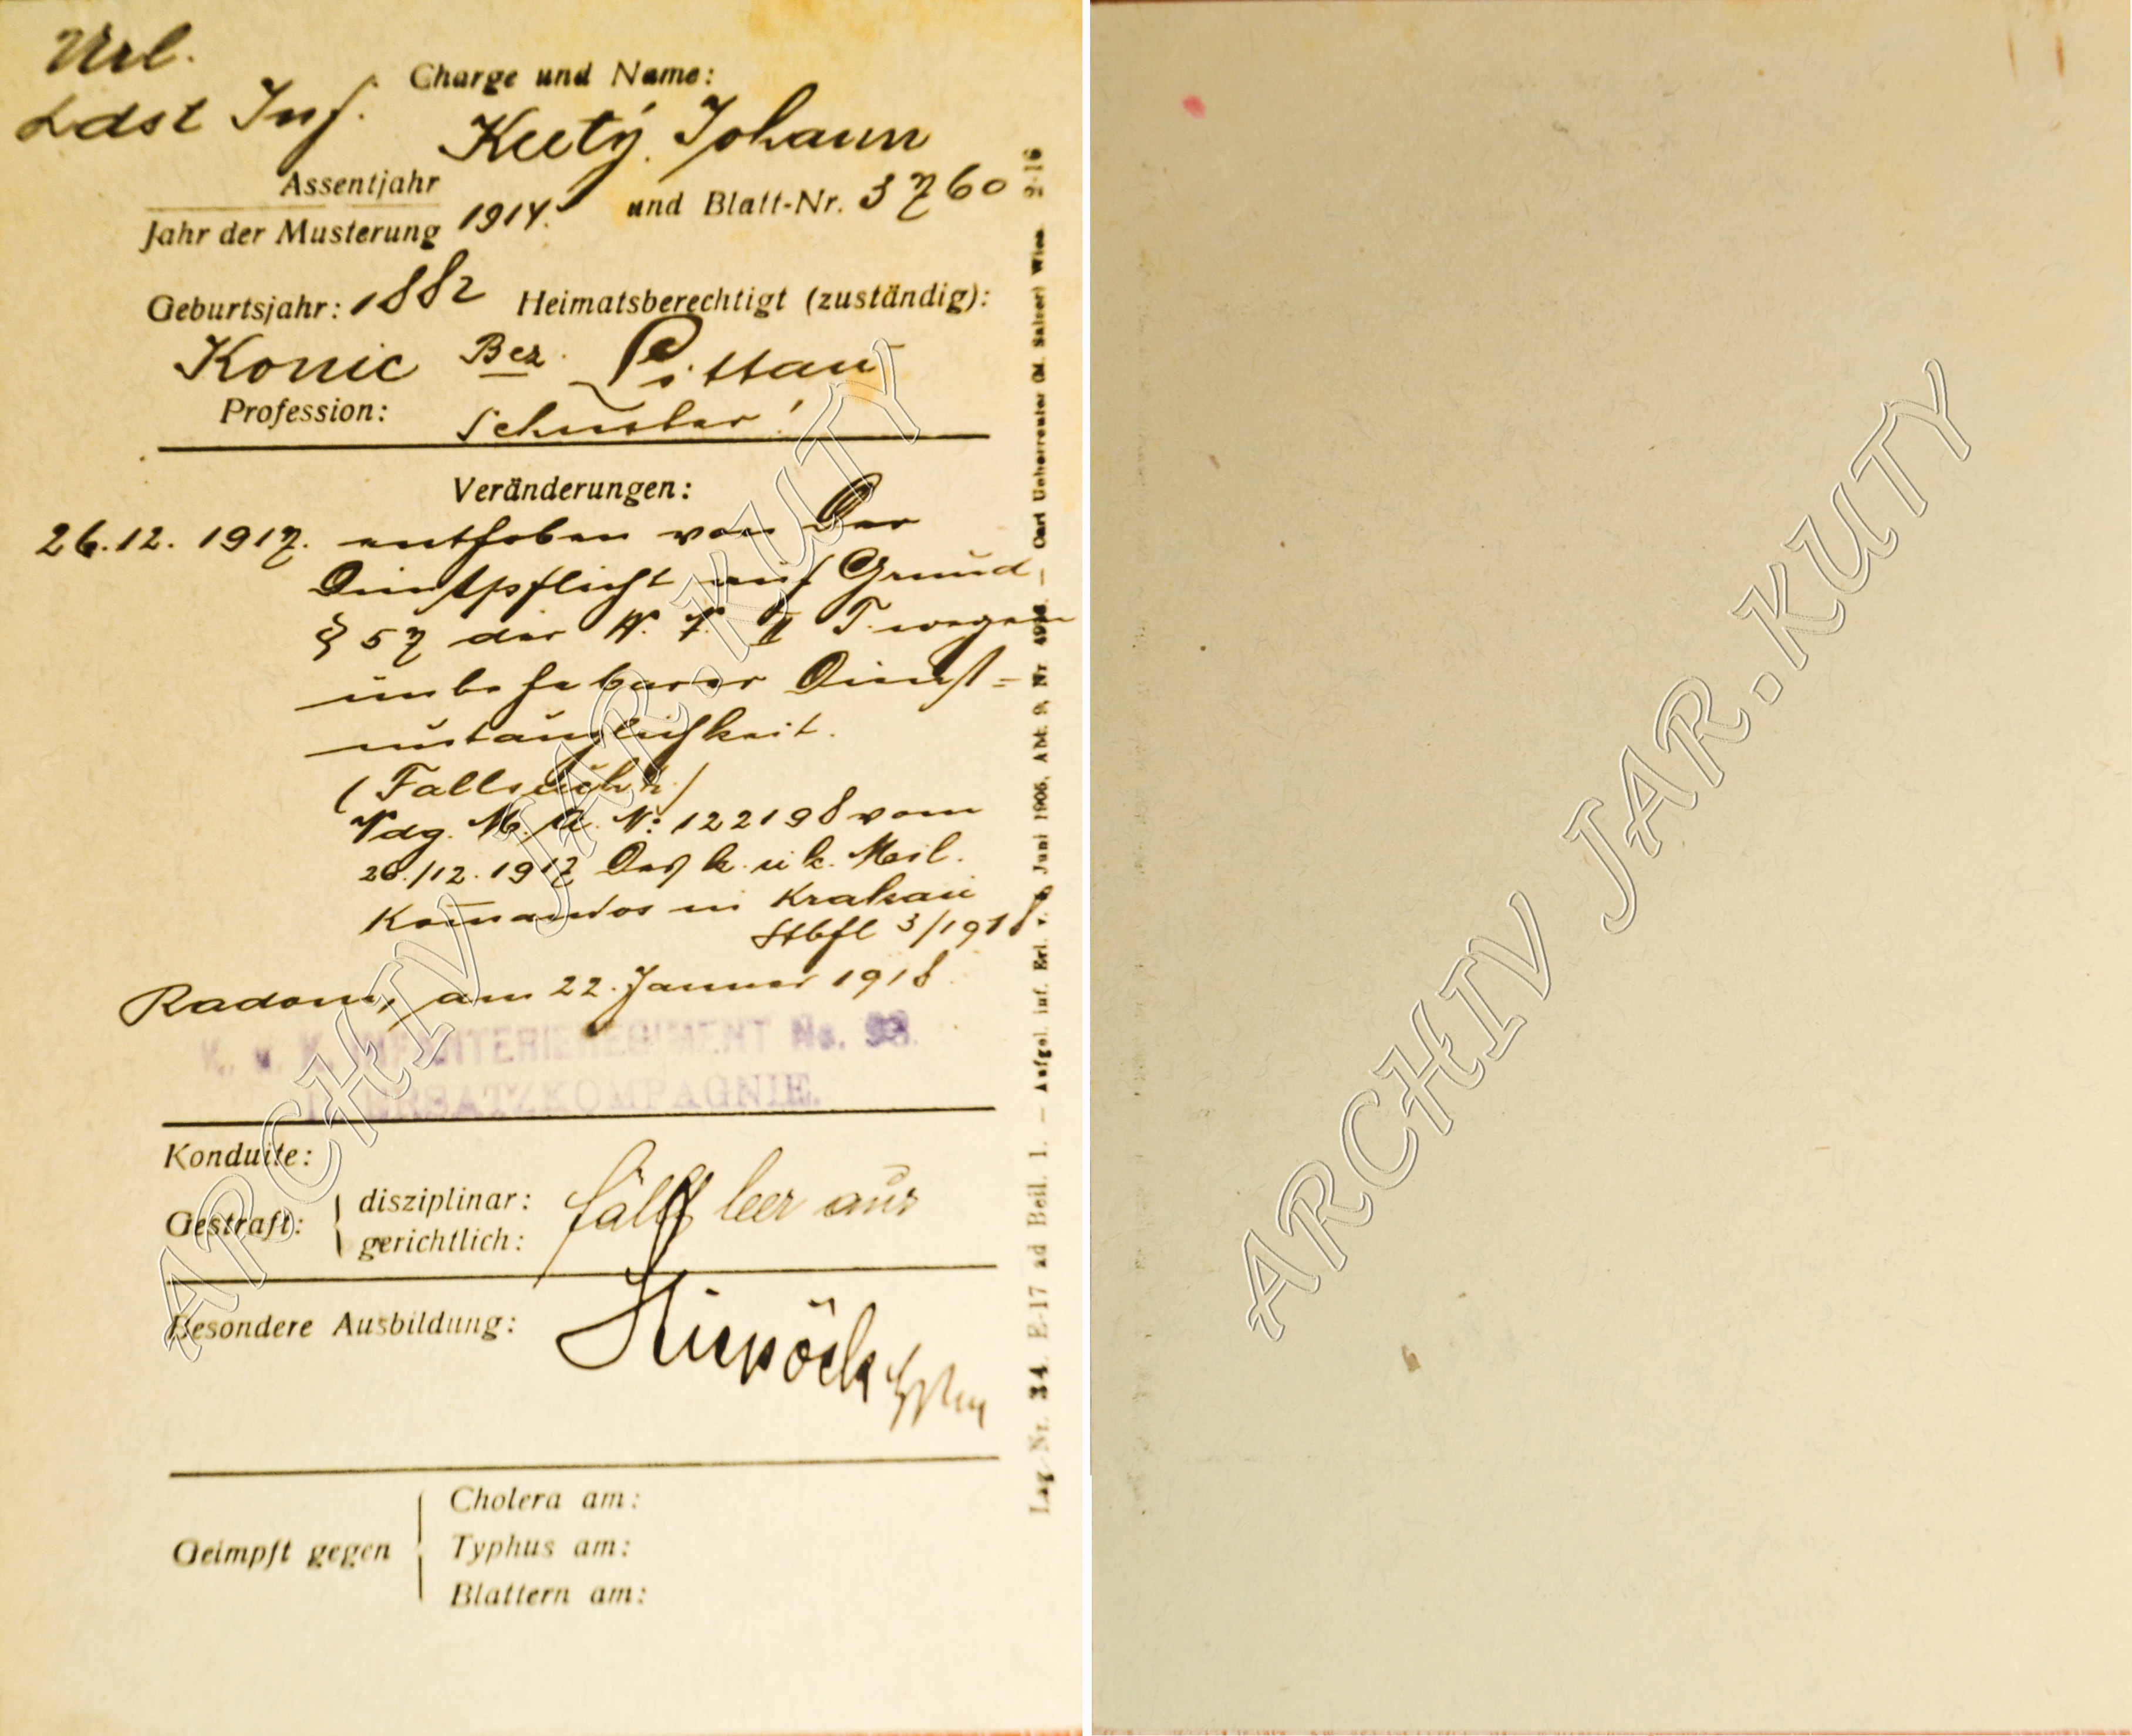 Url.
Ldst Inf.
Charge und Name:
Kutý Johann
Assentjahr
Jahr der Musterung 1914. und Blatt-Nr. 3760
Geburtsjahr: 1882 Heimatsberechtigt (zuständig):
Konic Bez. Littau
Profession: Schuster!
Veränderungen:
26.12. 1917. enthoben von der
Dienstpflicht auf Grund
§ 57 der W. V. II T. wegen
unbehebbarer Dienst=
untauglichkeit.
(Fallsucht.)
Vdg. M. A. N: 122198 vom
20./12. 1917 des k. u. k. Mil.
Komandos in Krakau
Stbfl 3/1918
Radom, am 22. Januar 1918.
K. u. K. INFANTERIEREGIMENT No. 93.
ERSATZKOMPAGNIE.
Konduite:
Gestraft: disziplinar:
gerichtlich:
fällt leer aus
Besondere Ausbildung:
Geimpft gegen
Cholera am:
Typhus am:
Blattern am:
Lag.-Nr. 34. E-17 ad Beil. 1. — Aufgel. inf. Erl. v. Juni 1906, Abt. 9, Nr. — Carl Ueberreuter (M. Salzer) Wien. 2-16
ARCHIV JAR.KUTY
ARCHIV JAR.KUTY